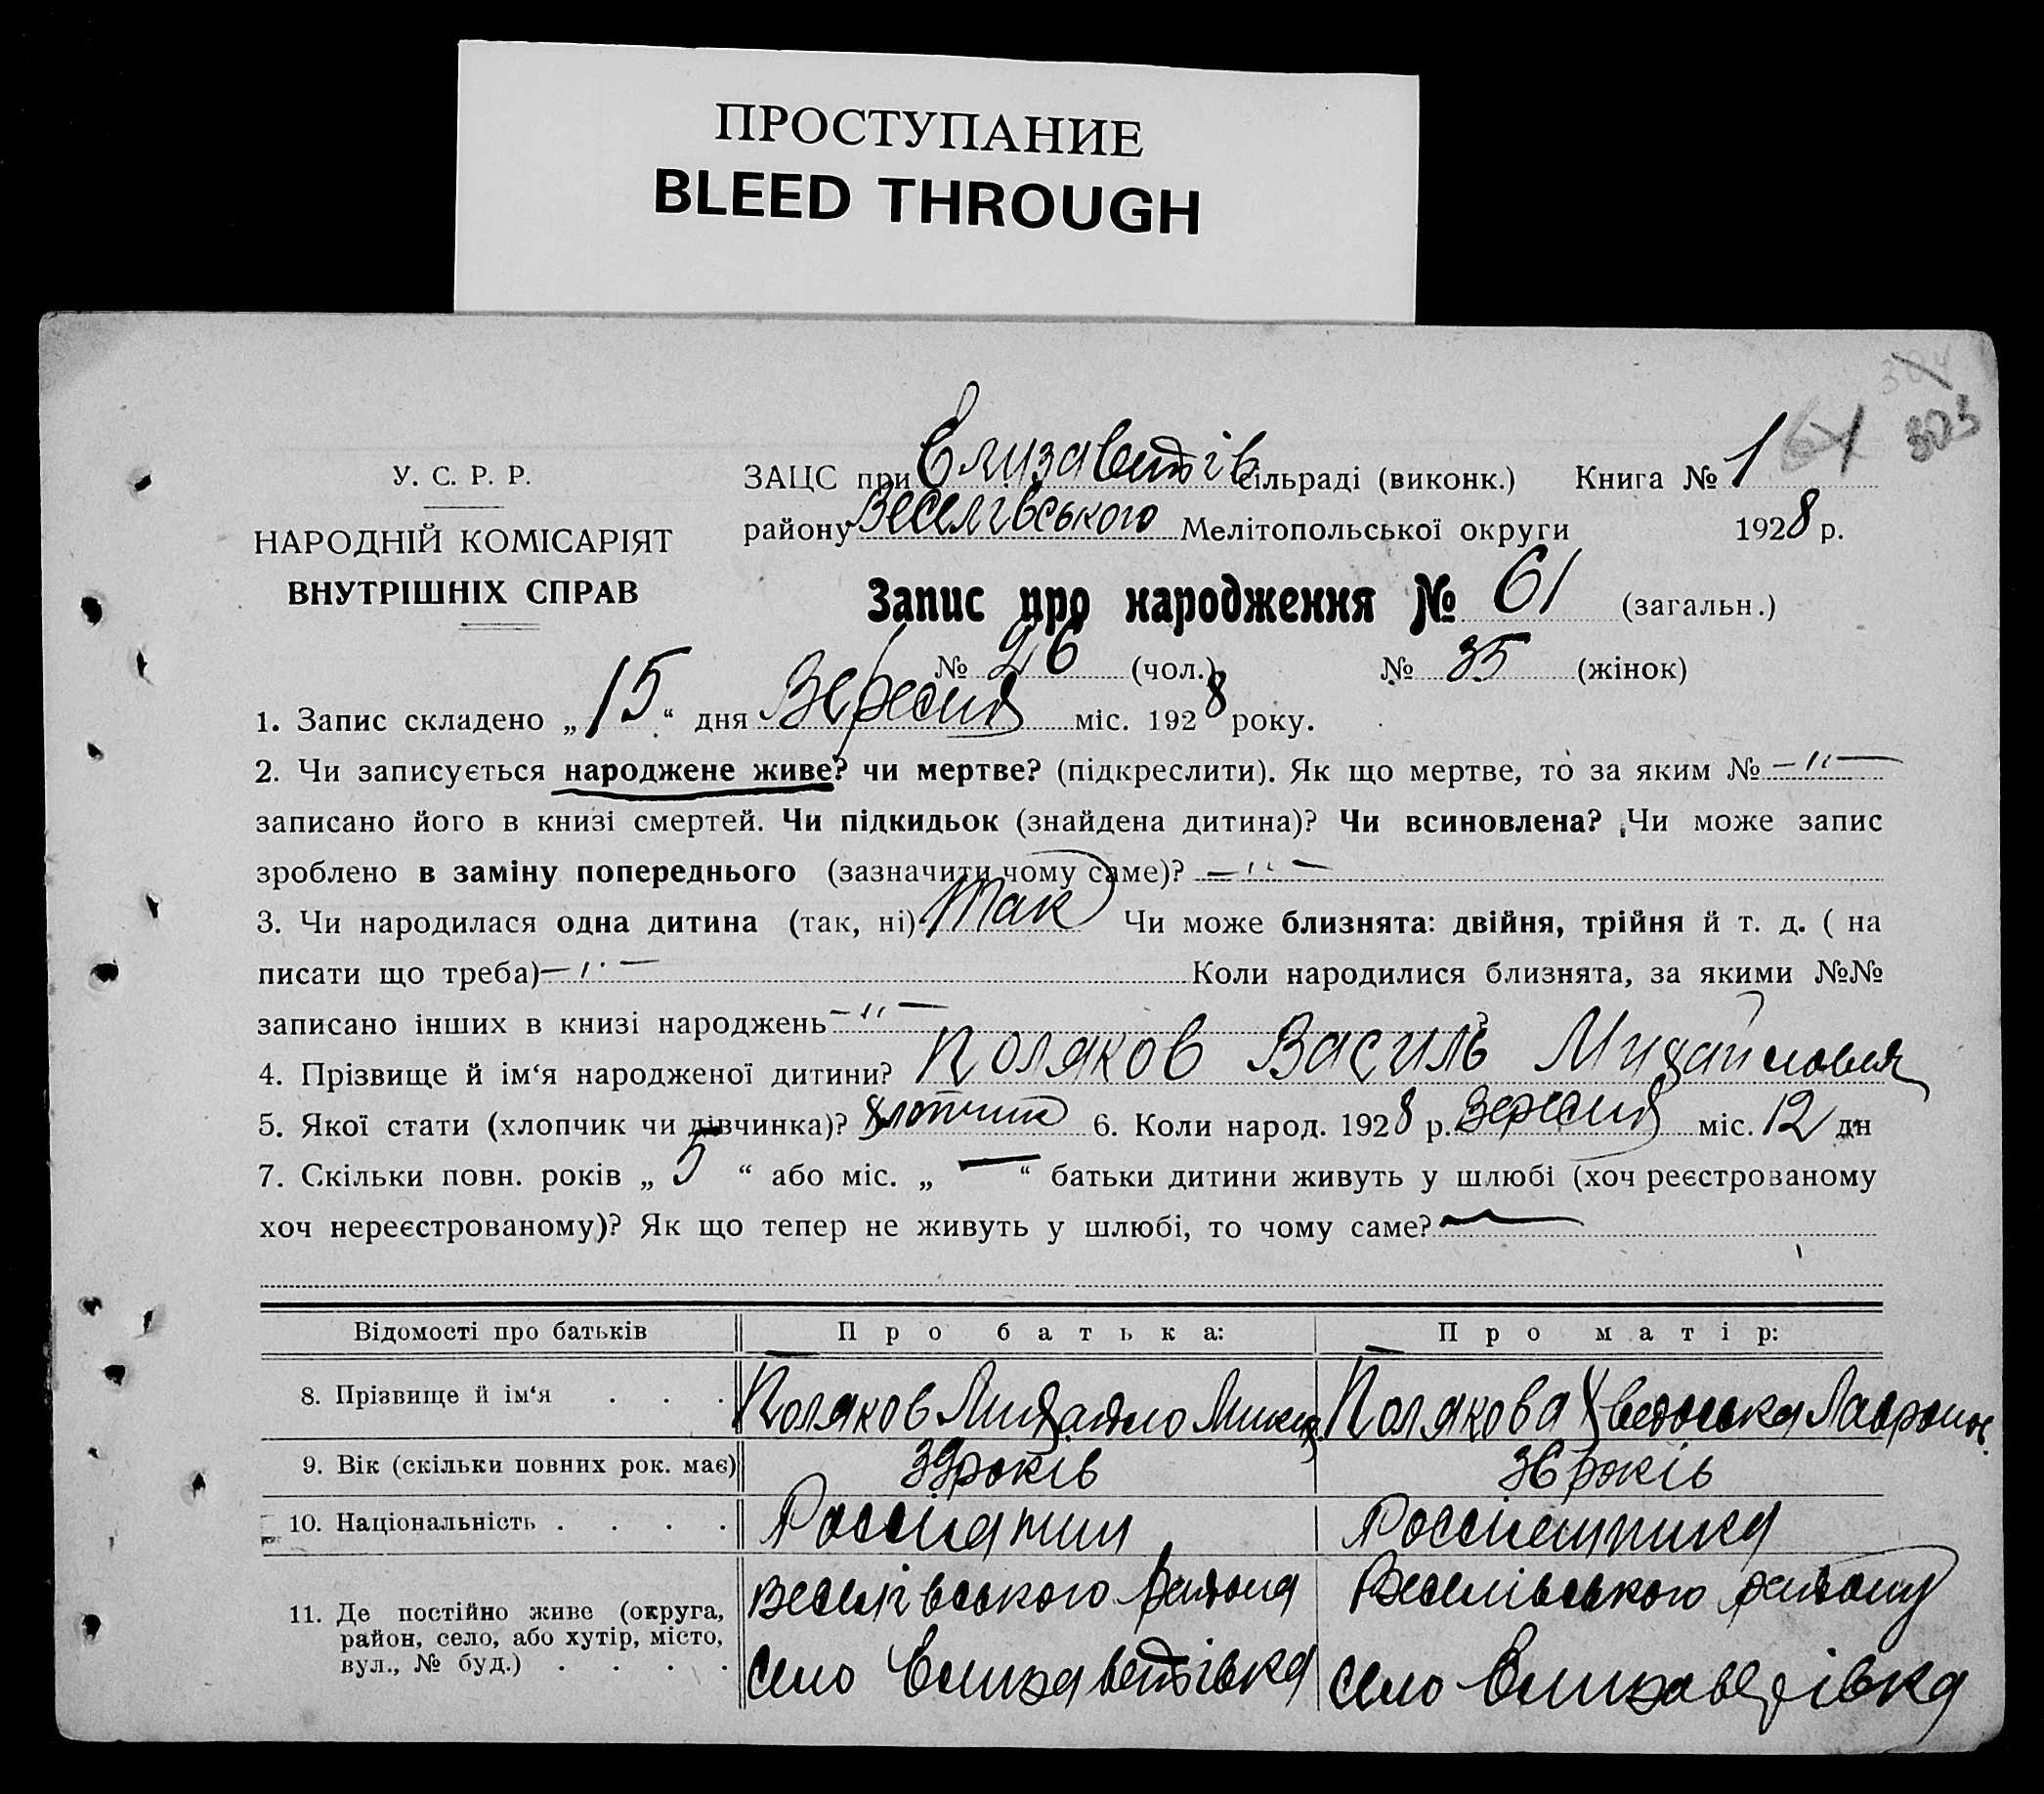 ПРОСТУПАНИЕ
BLEED THROUGH
304
61 303
У. С. Р. Р.
НАРОДНІЙ КОМІСАРІЯТ
ВНУТРІШНІХ СПРАВ
ЗАЦС при Єлизаветів сільраді (виконк.) Книга № 1
району Веселівського Мелітопольської округи 1928 р.
Запис про народження № 61 (загальн.)
№ 26 (чол.) № 35 (жінок)
1. Запис складено „15“ дня Вересня міс. 1928 року.
2. Чи записується народжене живе? чи мертве? (підкреслити). Як що мертве, то за яким № –"–
записано його в книзі смертей. Чи підкидьок (знайдена дитина)? Чи всиновлена? Чи може запис
зроблено в заміну попереднього (зазначити чому саме)? –"–
3. Чи народилася одна дитина (так, ні) Так Чи може близнята: двійня, трійня й т. д. ( на
писати що треба) –"– Коли народилися близнята, за якими №№
записано інших в книзі народжень –"– ?
4. Прізвище й ім‘я народженої дитини? Поляков Василь Михайлович
5. Якої стати (хлопчик чи дівчинка)? хлопчик 6. Коли народ. 1928 р. Вересня міс. 12 дн
7. Скільки повн. років „ 5 “ або міс. „ — “ батьки дитини живуть у шлюбі (хоч реєстрованому
хоч нереєстрованому)? Як що тепер не живуть у шлюбі, то чому саме? —
Відомості про батьків Про батька: Про матір:
8. Прізвище й ім‘я . . . Поляков Михайло Микит. Полякова Хведоська Лаврон.
9. Вік (скільки повних рок. має) 39 років 36 років
10. Національність . . . . Россіянин Россіянника
11. Де постійно живе (округа,
район, село, або хутір, місто,
вул., № буд.) . . . .
Веселівського района
село Єлизаветівка
Веселівського району
село Єлизаветівка